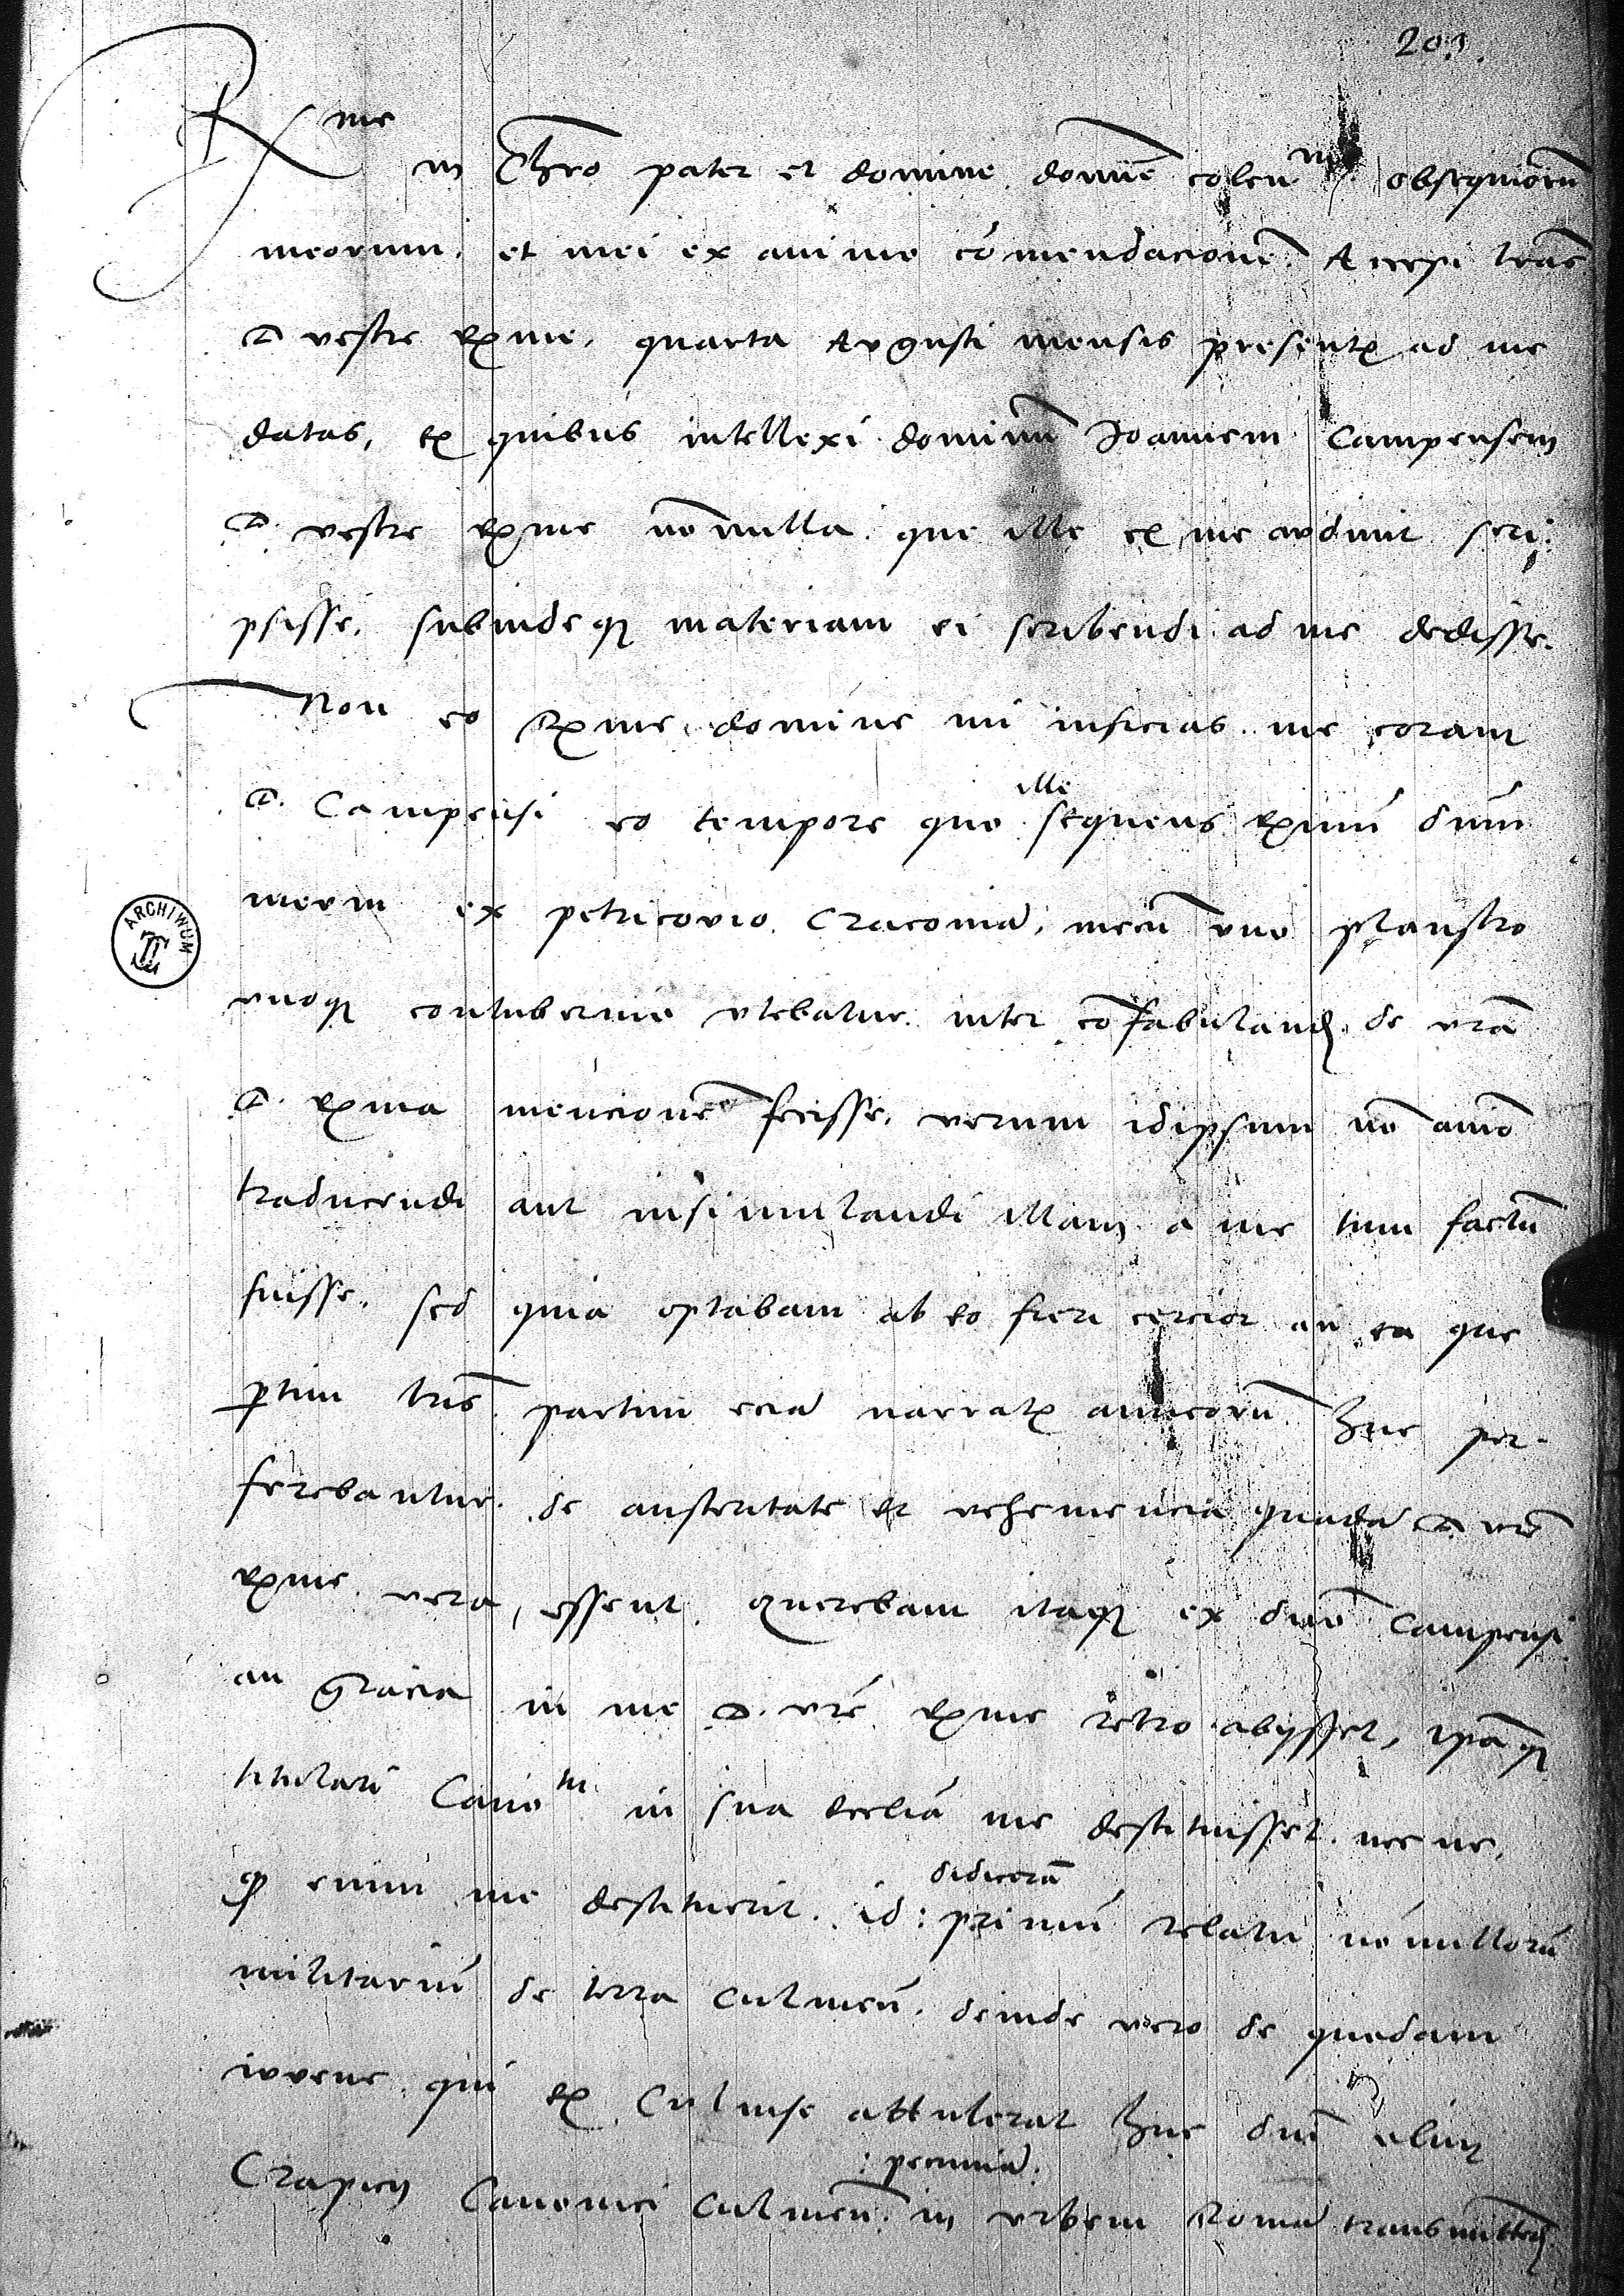 203
Rme
in Christo pater et domine domine colenme. obsequiorum
meorum. et mei ex anime comendacione. Accepi lras
D vestre Rme. quarta Augusti mensis presentis ad me
datas, ex quibus intellexi dominum Joannem Campensem
D. vestre Rme nonnulla. que ille ex me audivit scri:
psisse. subindeque materiam ei scribendi ad me dedisse.
Non eo Rme domine mi inficias. me coram
D. Campensi eo tempore quo ille sequens Rmum dnum
meum ex petricovio. Cracoviam, mecum uno plaustro
unoque contubernio utebatur. inter confabuland. de vra
D. Rma mencionem fecisse. verum idipsum non animo
traducendi aut insimulandi illam a me tum factum
fuisse. sed quia optabam ab eo fieri cercior an ea que
partim lris partim eciam narratis amicorum. huc per-
ferebantur. de austeritate et vehemencia quadam D. vre
Rme vera, essent. querebam itaque ex dno Campensi
an gracia in me D. vre Rme retro abysset, ipaque
titulari Canotu in sua ecclia me destituisset. nec ne,
Quod enim me destituerit. id: didiceram primum relatu nonnullorum
militarium de terra culmen. deinde vero de quodam
iuvene qui ex Culmse attulerat huc dni
Crapicy Canonici culmen: : pecuniam. in urbem Romam transmittend
ARCHIWUM